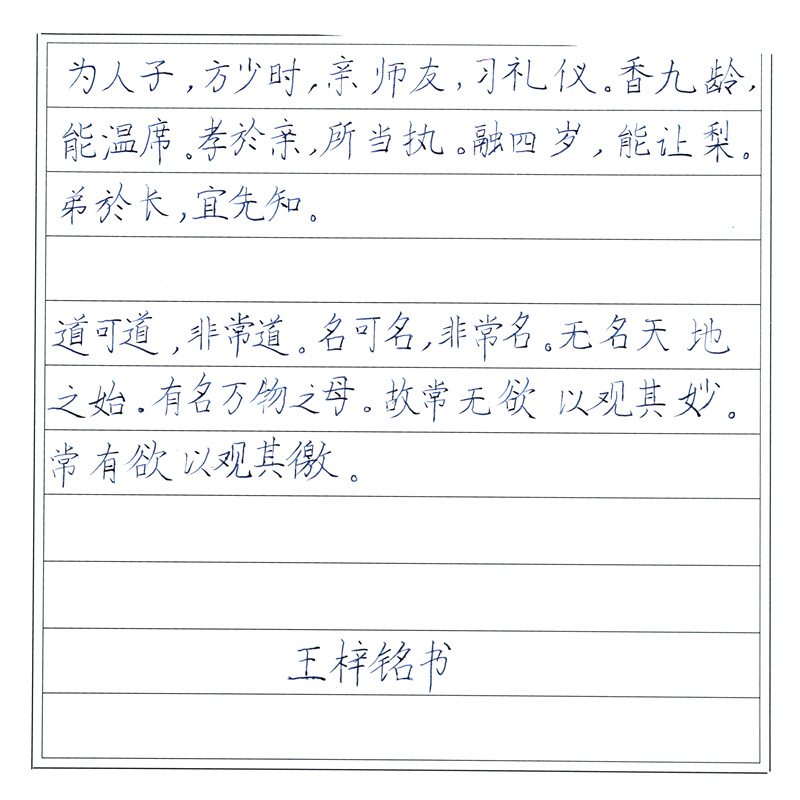 为人子,方少时,亲师友,习礼仪。香九龄,
能温席。孝於亲,所当执。融四岁,能让梨。
弟於长,宜先知。
道可道,非常道。名可名,非常名。无名天地
之始。有名万物之母。故常无欲 以观其妙。
常有欲以观其徼。
王梓铭书